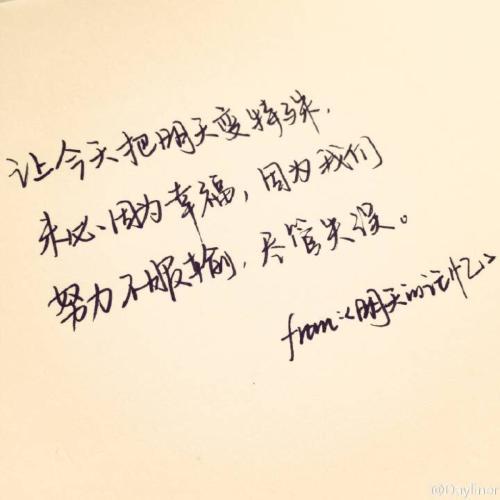 让今天把明天变特殊，
未必因为幸福，因为我们
努力不服输，尽管失误。
from:《明天的记忆》
@Daylinor